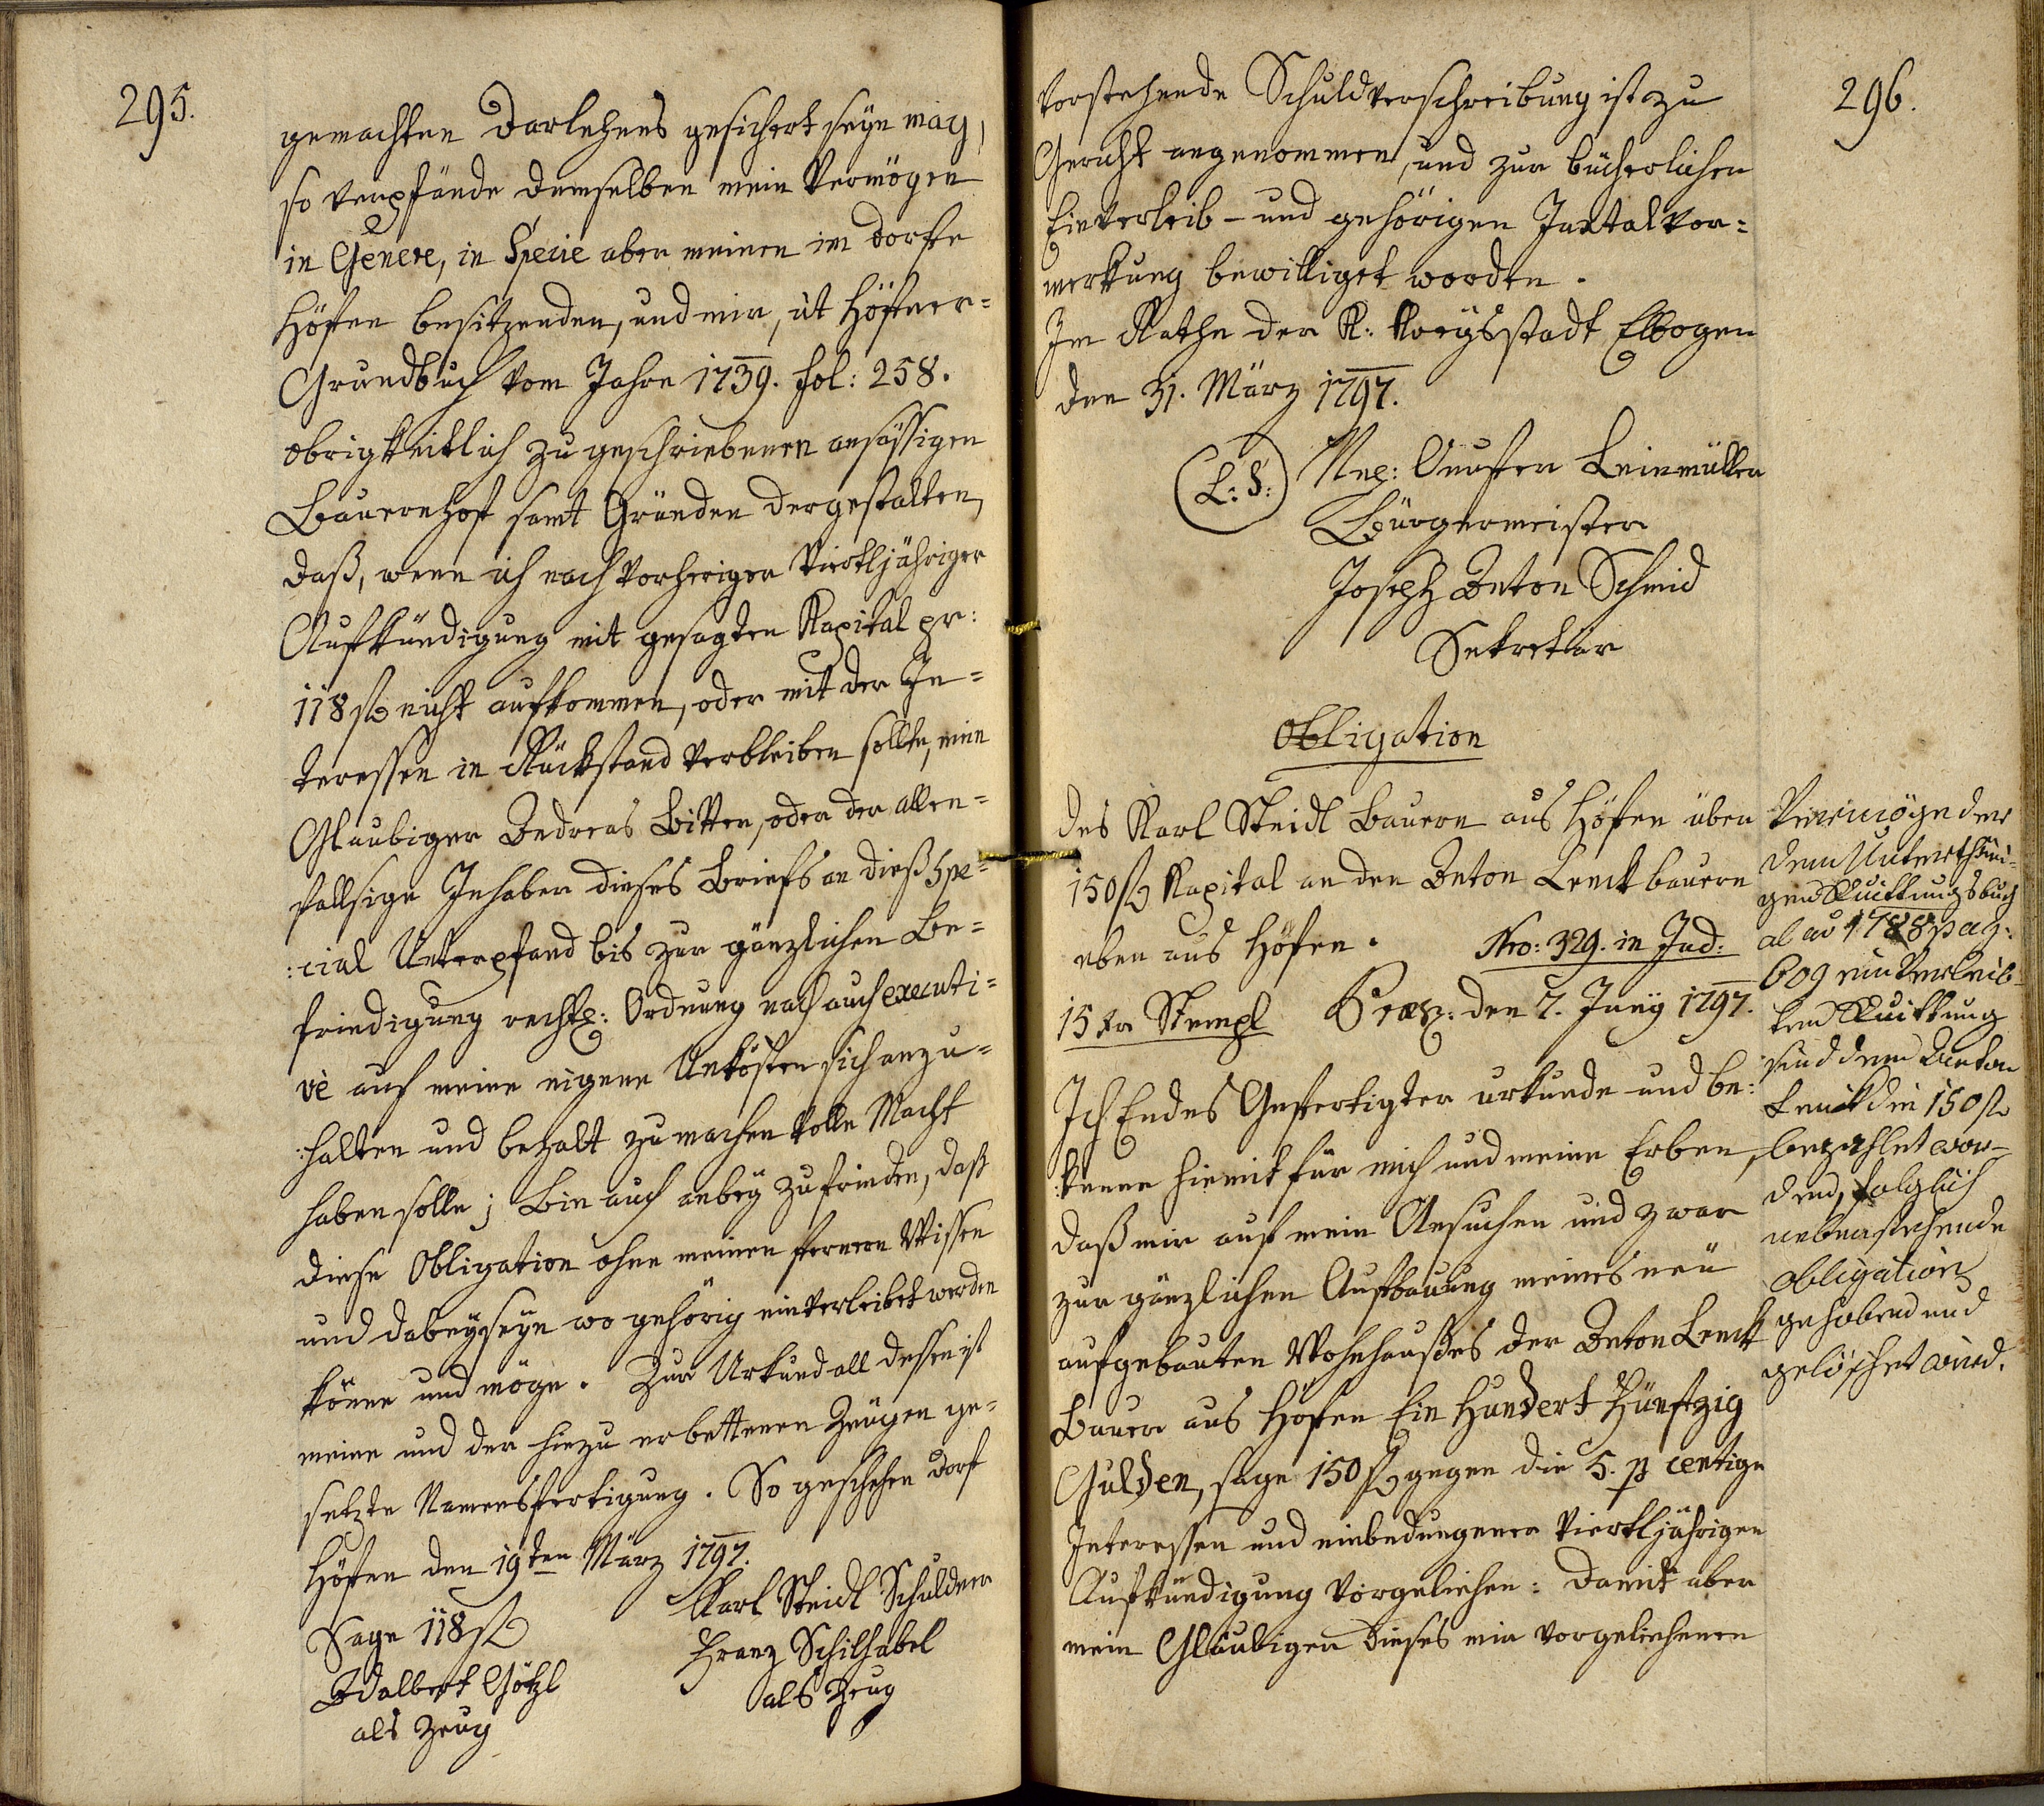 295.
gemachten Darlehens gesichert seyn mag,
so verpfände demselben mein Vermögen
in Genere, in Specie aber meinen im Dorfe
Höfen besitzenden, und mir, ut Höfner-
Grundbuch vom Jahre 1739. fol: 258.
obrigkeitlich zugeschriebenen ansässigen
Bauernhof samt Gründen dergestalten,
daß, wenn ich nach vorheriger viertljähriger
Aufkündigung mit gesagten Kapital pr:
118 fl nicht aufkommen, oder mit der In-
teressen in Rückstand verbleiben sollte, mein
Glaubiger Andreas Bitter, oder der allen-
fallsige Inhaber dieses Briefs an dieß Spe-
:cial Unterpfand bis zur gänzlichen Be-
friedigung rechts: Ordnung nach auch executi-
vè auf meine eigene Unkösten sich anzu-
:halten und bezalt zu machen volle Macht
haben solle; Bin auch anbey zufrieden, daß
diese Obligation ohne meinen fernern Wissen
und dabeyseyn wo gehörig einverleibet werden
könne und möge. Zur Urkund all dessen ist
meine und der hiezu erbettenen Zeugen ge-
setzte Namensfertigung. So geschehen Dorf
Höfen den 19ten März 1797.
Sage 118 fl
Karl Steidl Schuldner
Adalbert Götzl
als Zeug
Franz Schilhabel
als Zeug
296.
Vorstehende Schuldverschreibung ist zu
Gericht angenommen, und zur bücherlichen
Einverleib- und gehörigen Juxtalvor=
merkung bewilliget worden.
Im Rathe der K: Kreysstadt Elbogen
den 31. März 1797.
(L: S:)
Nep: Leinmüller
Bürgermeister
Joseph Anton Schmid
Sekretär
Obligation
des Karl Steidl Bauern aus Höfen über
150 fl Kapital an den Anton Lenck bauern
eben aus Höfen. Nro: 329. in Jud:
15 kr Stempl Præs: den 7. Juny 1797.
Ich Endes Gefertigter urkunde und be-
:kenne hiemit für mich und meine Erben,
daß mir auf mein Ansuchen und zwar
zur gänzlichen Aufbauung meines neü
aufgebauten Wohnhaußes der Anton Lenck
Bauer aus Höfen Ein Hundert Fünfzig
Gulden, sage 150 fl gegen die 5. p centige
Interessen und einbedungener viertljährigen
Aufkündigung vorgeliehen: Damit aber
mein Glaubiger dieses mir vorgeliehenen
Vermöge der
dem Unterthäni-
gen Quittungsbuch
ab aō 1788 pag:
609 einverleib-
ten Quittung
sind dem Anton
Lenck die 150 fl
bezahlet wor-
den, folglich
nebenstehende
Obligation
gehoben und
gelöschet wird.